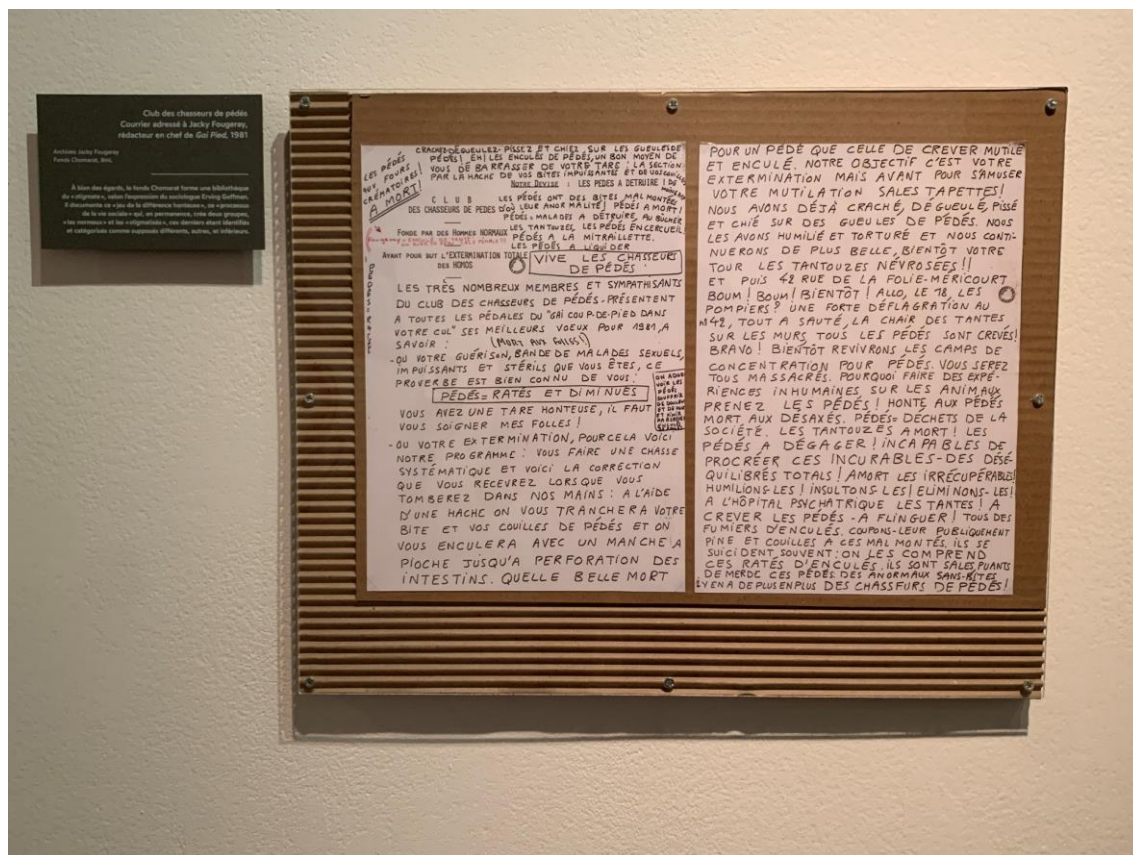 Club des chasseurs de pédés
Courrier adressé à Jacky Fougeray,
rédacteur en chef de Gai Pied, 1981
Archives Jacky Fougeray
Fonds Chomarat, BmL
À bien des égards, le fonds Chomarat forme une bibliothèque
du « stigmate », selon l'expression du sociologue Erving Goffman.
Il documente ce « jeu de la différence honteuse », ce « processus
de la vie sociale » qui, en permanence, crée deux groupes,
« les normaux » et les « stigmatisés », ces derniers étant identifiés
et catégorisés comme supposés différents, autres, et inférieurs.
LES PÉDÉS
AUX FOURS
CRÉMATOIRES!
A MORT!
CRACHEZ-DÉGUEULEZ-PISSEZ ET CHIEZ SUR LES GUEULES DE
PÉDÉS! EH! LES ENCULÉS DE PÉDÉS, UN BON MOYEN DE
VOUS DÉBARRASSER DE VOTRE TARE : LA SECTION
PAR LA HACHE DE VOS BITES IMPUISSANTES ET DE VOS
NOTRE DEVISE : LES PEDES A DETRUIRE!
CLUB
DES CHASSEURS DE PEDES
FONDE PAR DES HOMMES NORMAUX
AYANT POUR BUT L'EXTERMINATION TOTALE
DES HOMOS
LES PÉDÉS ONT DES BITES MAL MONTÉES
D'OÙ LEUR ANORMALITÉ! PÉDÉS A MORT!
PÉDÉS=MALADES A DÉTRUIRE, AU BÛCHER
LES TANTOUZES, LES PÉDÉS EN CERCUEIL
PÉDÉS A LA MITRAILLETTE.
LES PÉDÉS A LIQUIDER
VIVE LES CHASSEURS
DE PÉDÉS!
LES TRÈS NOMBREUX MEMBRES ET SYMPATHISANTS
DU CLUB DES CHASSEURS DE PÉDÉS-PRÉSENTENT
A TOUTES LES PÉDALES DU "GAI COUP-DE-PIED DANS
VOTRE CUL" SES MEILLEURS VOEUX POUR 1981, A
SAVOIR : (MORT AUX FOLLES!)
-OU VOTRE GUÉRISON, BANDE DE MALADES SEXUELS,
IMPUISSANTS ET STÉRILS QUE VOUS ÊTES, CE
PROVERBE EST BIEN CONNU DE VOUS :
PÉDÉS=RATÉS ET DIMINUÉS
VOUS AVEZ UNE TARE HONTEUSE, IL FAUT
VOUS SOIGNER MES FOLLES!
-OU VOTRE EXTERMINATION, POUR CELA VOICI
NOTRE PROGRAMME : VOUS FAIRE UNE CHASSE
SYSTÉMATIQUE ET VOICI LA CORRECTION
QUE VOUS RECEVREZ LORSQUE VOUS
TOMBEREZ DANS NOS MAINS : A L'AIDE
D'UNE HACHE ON VOUS TRANCHERA VOTRE
BITE ET VOS COUILLES DE PÉDÉS ET ON
VOUS ENCULERA AVEC UN MANCHE A
PIOCHE JUSQU'A PERFORATION DES
INTESTINS. QUELLE BELLE MORT
POUR UN PÉDÉ QUE CELLE DE CREVER MUTILÉ
ET ENCULÉ. NOTRE OBJECTIF C'EST VOTRE
EXTERMINATION MAIS AVANT POUR S'AMUSER
VOTRE MUTILATION SALES TAPETTES!
NOUS AVONS DÉJÀ CRACHÉ, DÉGUEULÉ, PISSÉ
ET CHIÉ SUR DES GUEULES DE PÉDÉS. NOUS
LES AVONS HUMILIÉ ET TORTURÉ ET NOUS CONTI-
NUERONS DE PLUS BELLE, BIENTÔT VOTRE
TOUR LES TANTOUZES NÉVROSÉES!!
ET PUIS 42 RUE DE LA FOLIE-MÉRICOURT
BOUM! BOUM! BIENTÔT! ALLO, LE 18, LES
POMPIERS? UNE FORTE DÉFLAGRATION AU
N°42, TOUT A SAUTÉ, LA CHAIR DES TANTES
SUR LES MURS TOUS LES PÉDÉS SONT CREVÉS!
BRAVO! BIENTÔT REVIVRONS LES CAMPS DE
CONCENTRATION POUR PÉDÉS. VOUS SEREZ
TOUS MASSACRÉS. POURQUOI FAIRE DES EXPÉ-
RIENCES INHUMAINES SUR LES ANIMAUX
PRENEZ LES PÉDÉS! HONTE AUX PÉDÉS
MORT AUX DÉSAXÉS. PÉDÉS=DÉCHETS DE LA
SOCIÉTÉ. LES TANTOUZES A MORT! LES
PÉDÉS A DÉGAGER! INCAPABLES DE
PROCRÉER CES INCURABLES-DES DÉSÉ-
QUILIBRÉS TOTALS! A MORT LES IRRÉCUPÉRABLES!
HUMILIONS-LES! INSULTONS-LES! ELIMINONS-LES!
A L'HÔPITAL PSYCHATRIQUE LES TANTES! A
CREVER LES PÉDÉS-A FLINGUER! TOUS DES
FUMIERS D'ENCULÉS. COUPONS-LEUR PUBLIQUEMENT
PINE ET COUILLES A CES MAL MONTÉS. ILS SE
SUICIDENT SOUVENT : ON LES COMPREND
CES RATÉS D'ENCULÉS. ILS SONT SALES, PUANTS
DE MERDE CES PÉDÉS. DES ANORMAUX SANS-BITES
Y EN A DE PLUS EN PLUS DES CHASSEURS DE PÉDÉS!